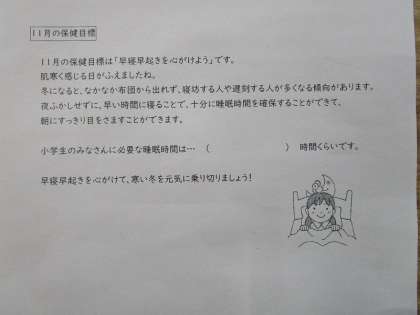 11月の保健目標
11月の保健目標は「早寝早起きを心がけよう」です。
肌寒く感じる日がふえましたね。
冬になると、なかなか布団から出れず、寝坊する人や遅刻する人が多くなる傾向があります。
夜ふかしせずに、早い時間に寝ることで、十分に睡眠時間を確保することができて、
朝にすっきり目をさますことができます。
小学生のみなさんに必要な睡眠時間は…（　　　　　　　）時間くらいです。
早寝早起きを心がけて、寒い冬を元気に乗り切りましょう！